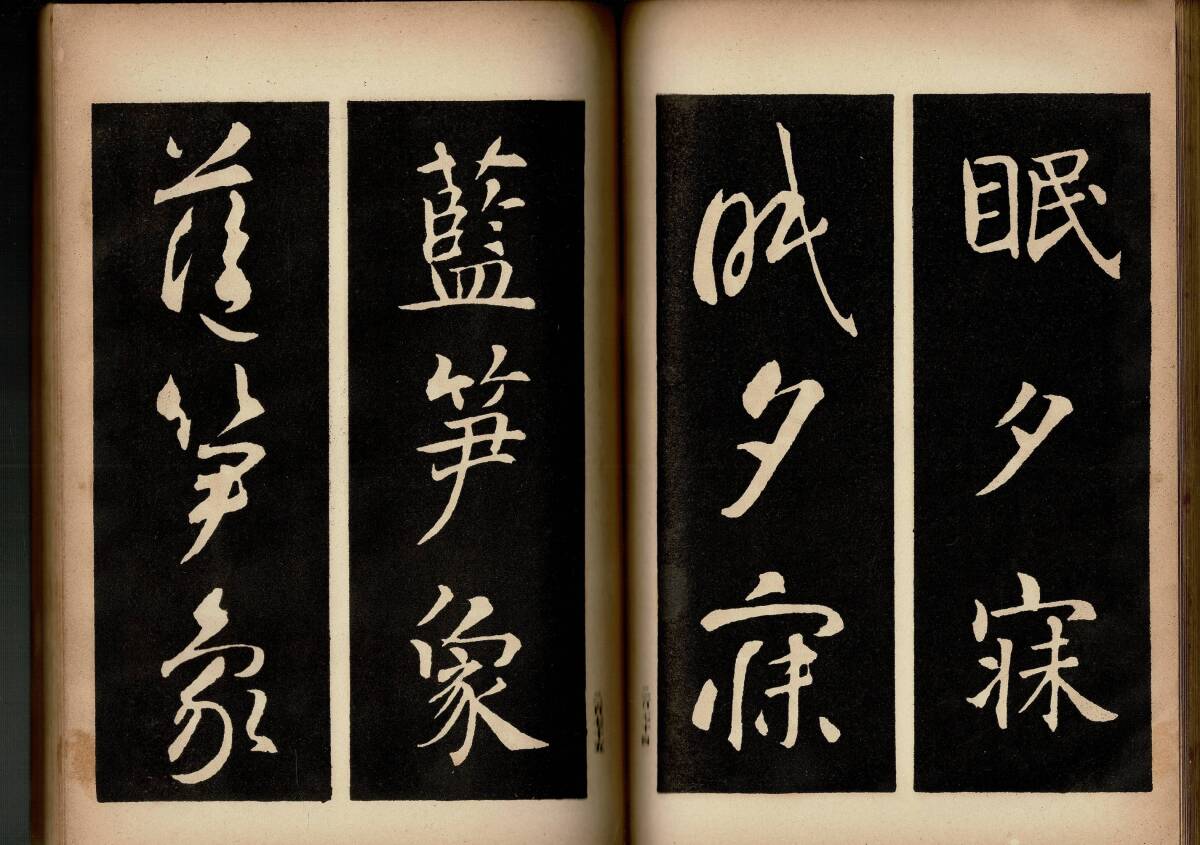 眠夕寐
眠夕寐
藍笋象
藍笋象